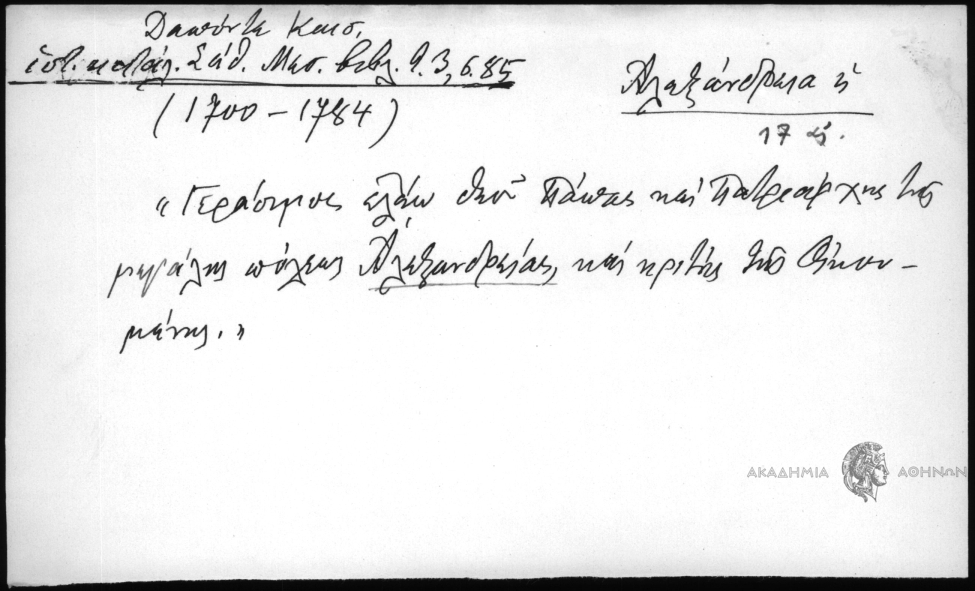 Δαπόντε Καισ.
ἱστ. κατάλ. Σάθ. Μεσ. Βιβλ. τ. 3, σ. 85
(1700 – 1784)
Ἀλεξάνδρεια ἡ
17
« Γεράσιμος ἐλέῳ Θεοῦ Πάπας καὶ Πατριάρχης τῆς
μεγάλης πόλεως Ἀλεξανδρείας, καὶ κριτὴς τῆς Οἰκου–
μένης. »
ΑΚΑΔΗΜΙΑ ΑΘΗΝΩΝ